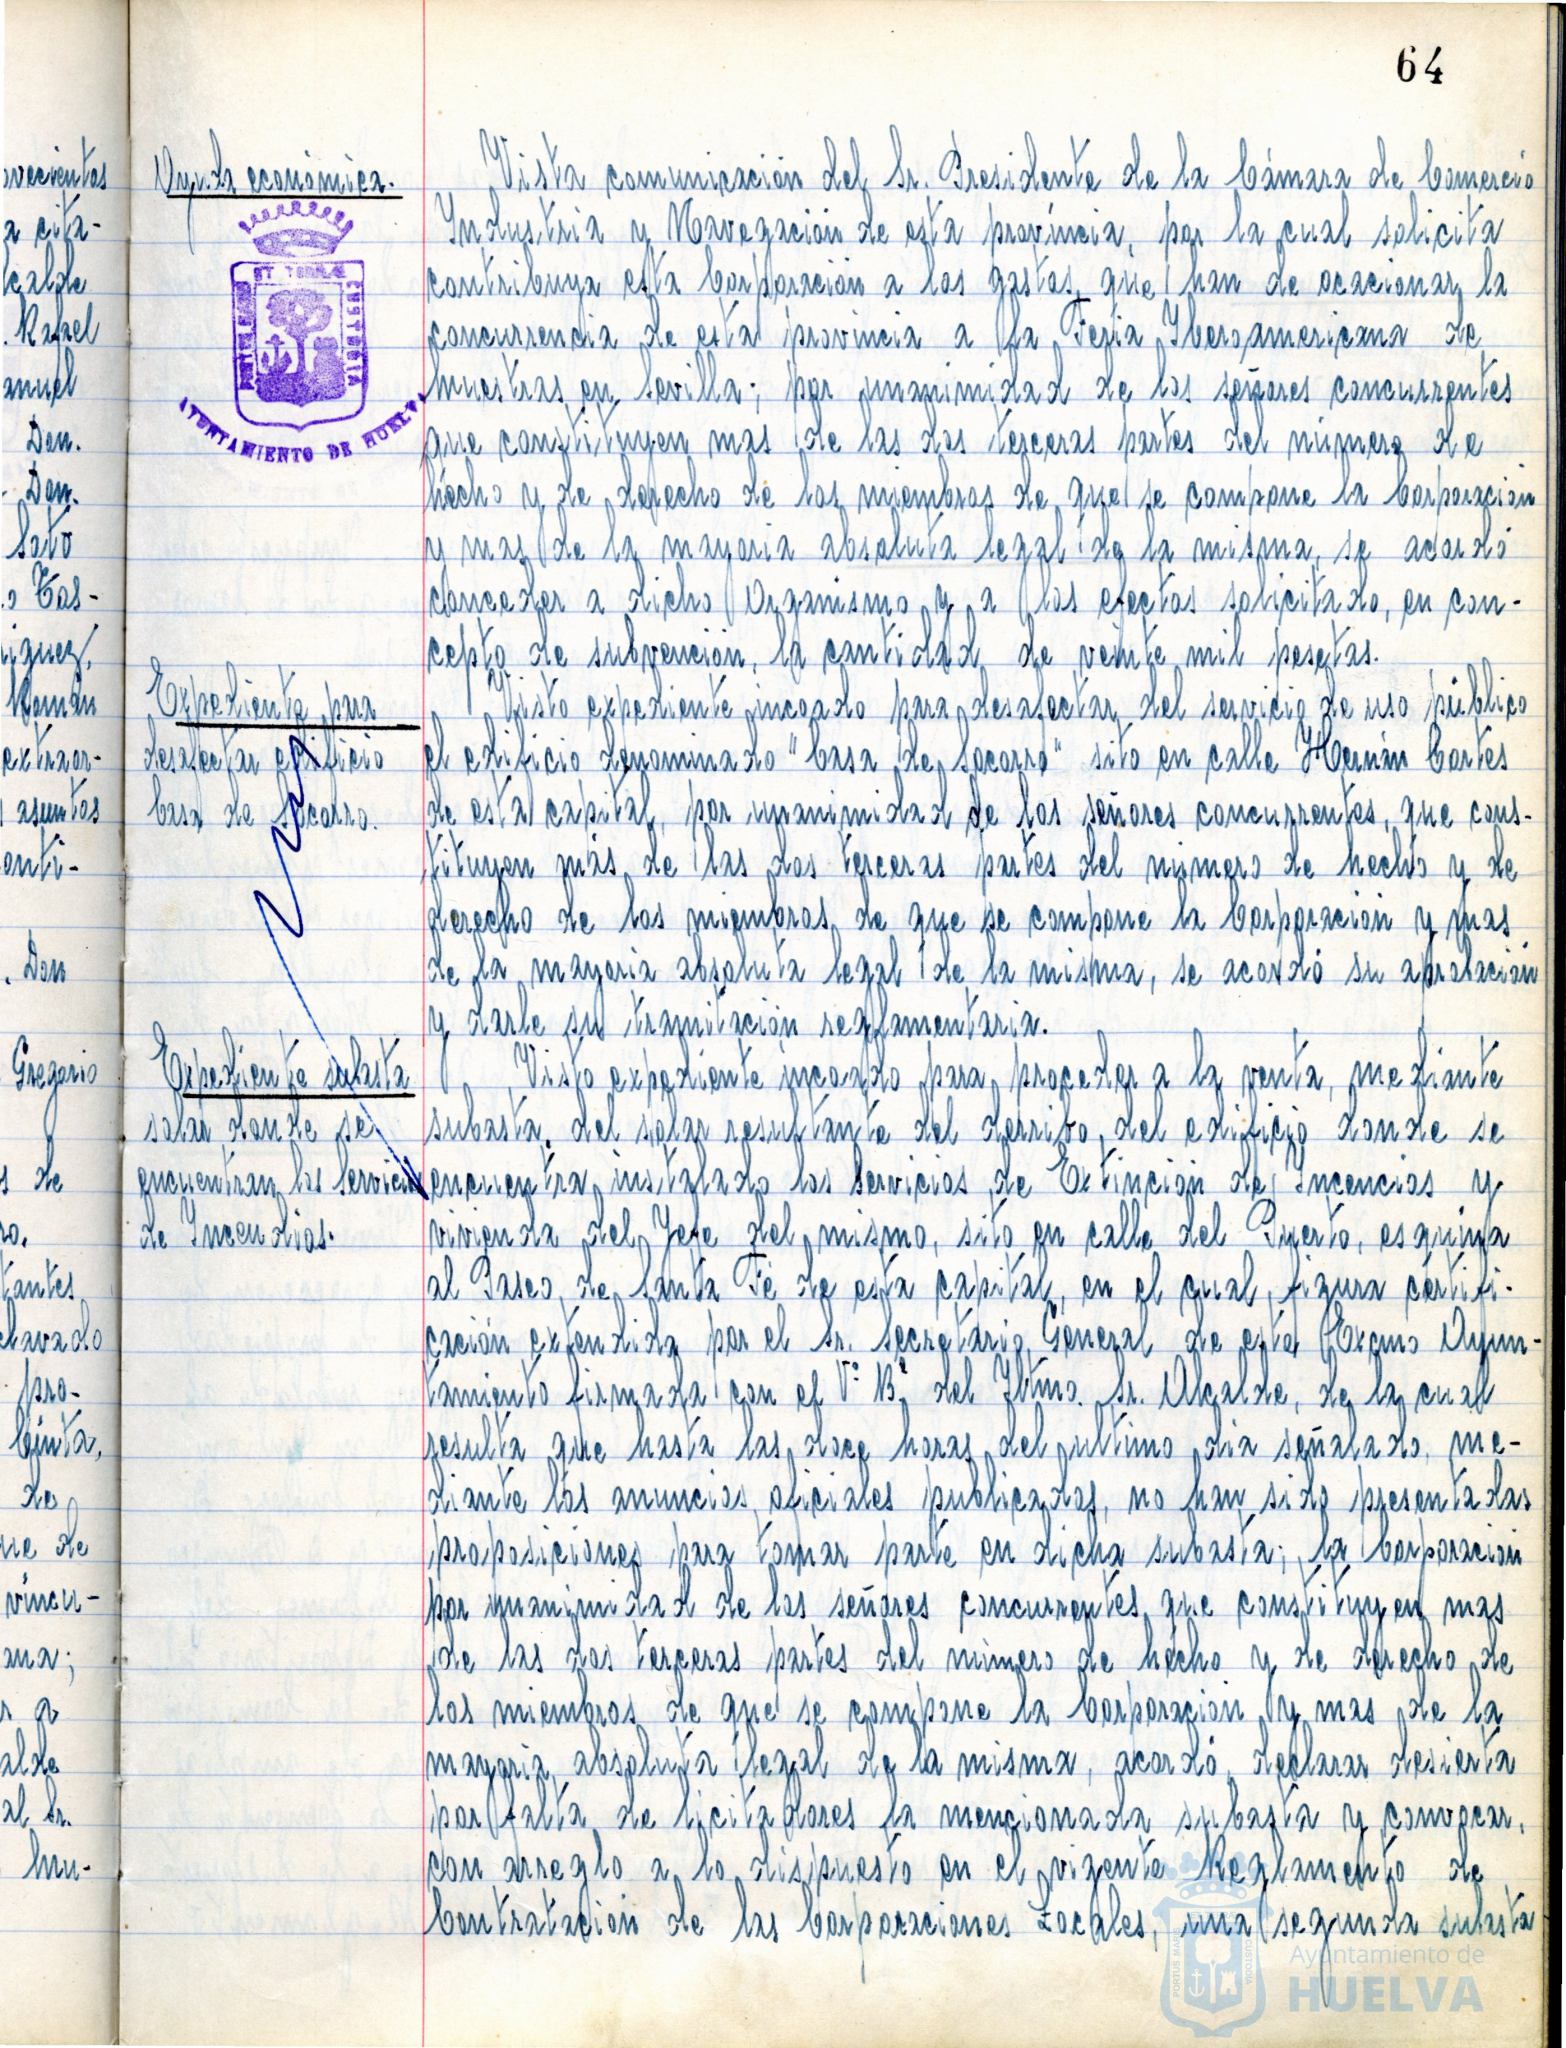 64
ovecientos
a cita-
lcalde
. Rafael
anuel
Don.
- Don.
Soto
o Cas-
iguez,
Román
extraor-
asuntos
onti-
. Don
Gregorio
s de
ro,
tantes
clavado
pro-
Cinta,
de
ue de
vincu-
ana;
r a
alde
al Sr.
hu-
Ayuda económica.
PORTUS MARIS ET TERRAE CUSTODIA
AYUNTAMIENTO DE HUELVA
Vista comunicación del Sr. Presidente de la Cámara de Comercio
Industria y Navegación de esta província, por la cual solicita
contribuya esta Corporación a los gastos que han de ocacionar la
concurrencia de esta província a la Feria Iberoamericana de
muestras en Sevilla; por unanimidad de los señores concurrentes
que constituyen mas de las dos terceras partes del número de
hecho y de derecho de los miembros de que se compone la Corporación
y mas de la mayoria absoluta legal de la misma, se acordó
conceder a dicho Organismo y a los efectos solicitado, en con-
cepto de subvención, la cantidad de veinte mil pesetas.
Expediente para
desafectar edificio
Casa de Socorro.
Visto expediente incoado para desafectar del servicio de uso público
el edificio denominado "Casa de Socorro" sito en calle Hernán Cortes
de esta capital, por unanimidad de los señores concurrentes, que cons-
tituyen más de las dos terceras partes del número de hecho y de
derecho de los miembros de que se compone la Corporación y mas
de la mayoria absoluta legal de la misma, se acordó su aprobación
y darle su tramitación reglamentaria.
Expediente subasta
solar donde se
encuentran los Servicios
de Incendios.
Visto expediente incoado para proceder a la venta, mediante
subasta, del solar resultante del derribo, del edificio donde se
encuentra instalado los Servicios de Extinción de Incencios y
vivienda del Jefe del mismo, sito en calle del Puerto, esquina
al Paseo de Santa Fé de esta capital, en el cual figura certifi-
cación extendida por el Sr. Secretario General de este Excmo Ayun-
tamiento firmada con el Vº Bº del Iltmo. Sr. Alcalde, de la cual
resulta que hasta las doce horas del ultimo dia señalado, me-
diante los anuncios oficiales publicados, no han sido presentadas
proposiciones para tomar parte en dicha subasta; la Corporación
por unanimidad de los señores concurrentes que constituyen mas
de las dos terceras partes del número de hecho y de derecho de
los miembros de que se compone la Corporación y mas de la
mayoria absoluta legal de la misma, acordó declarar desierta
por falta de licitadores la mencionada subasta y convocar,
con arreglo a lo dispuesto en el vigente Reglamento de
Contratación de las Corporaciones Locales, una segunda subasta
PORTUS MARIS CUSTODIA
Ayuntamiento de
HUELVA